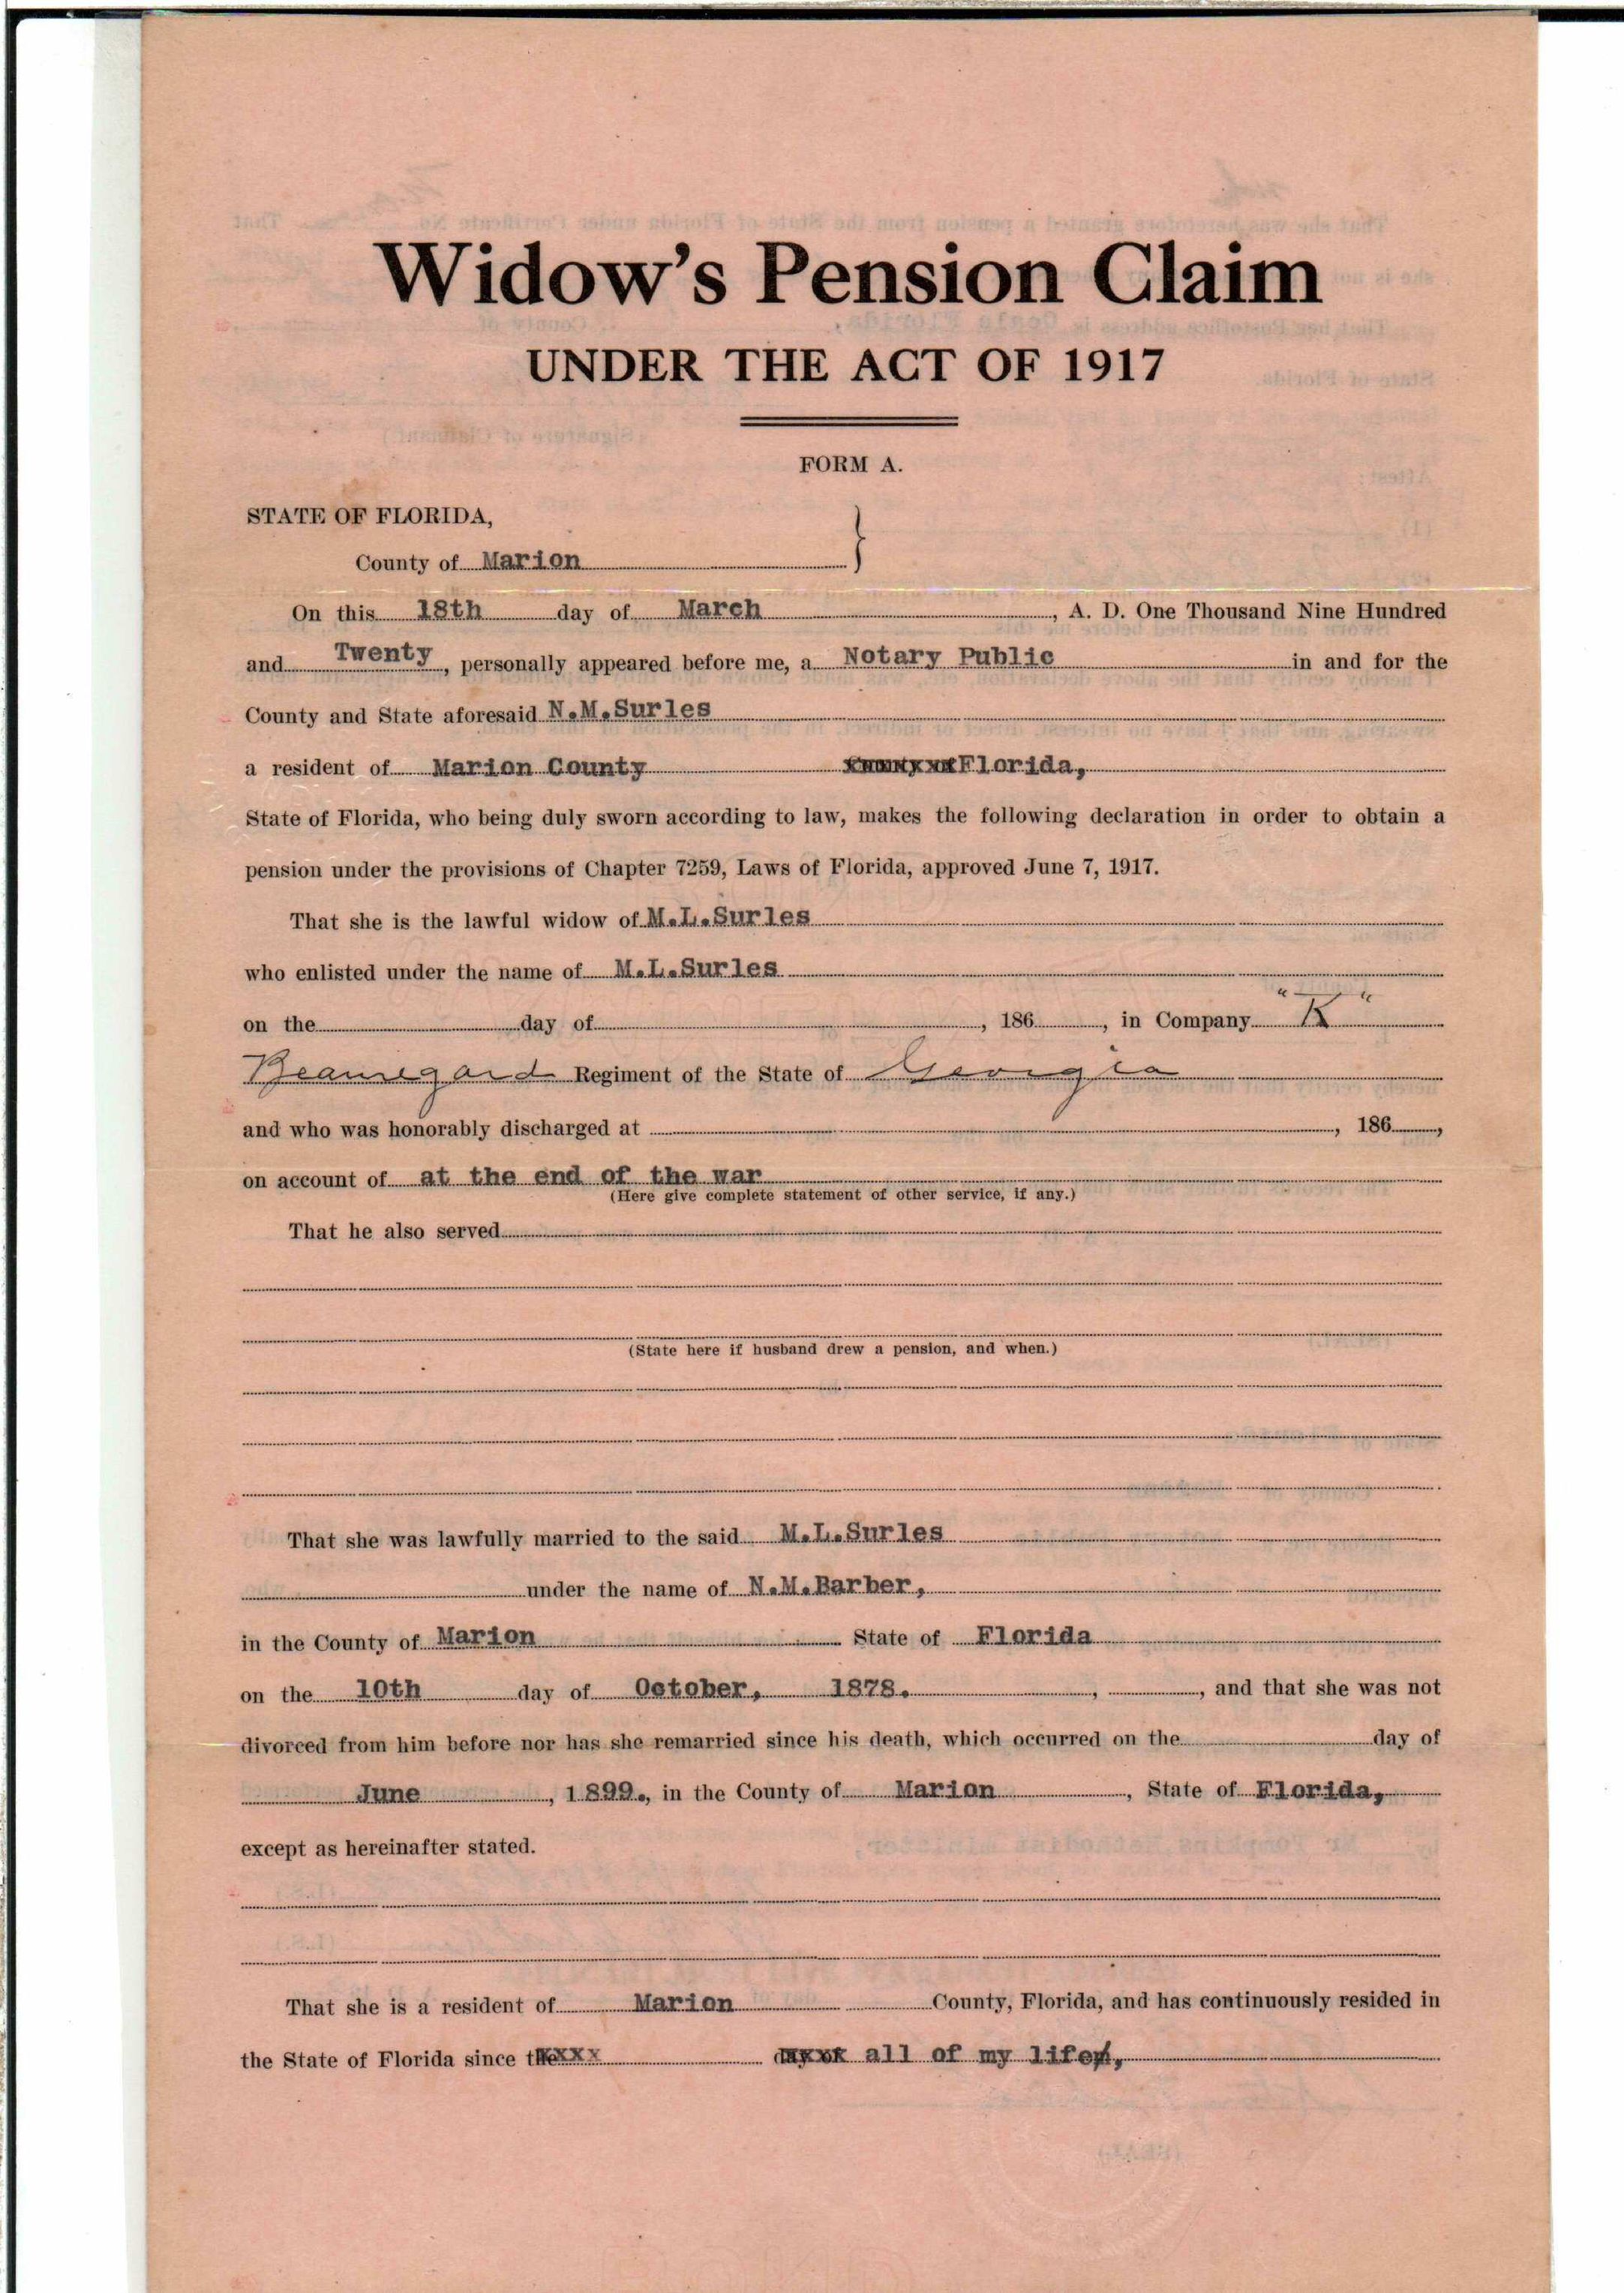 Widow's Pension Claim
UNDER THE ACT OF 1917
FORM A.
STATE OF FLORIDA,
County of Marion }
On this 18th day of March, A. D. One Thousand Nine Hundred
and Twenty, personally appeared before me, a Notary Public in and for the
County and State aforesaid N.M.Surles
a resident of Marion County Florida,
State of Florida, who being duly sworn according to law, makes the following declaration in order to obtain a
pension under the provisions of Chapter 7259, Laws of Florida, approved June 7, 1917.
That she is the lawful widow of M.L.Surles
who enlisted under the name of M.L.Surles
on the day of , 186 , in Company "K"
Beauregard Regiment of the State of Georgia
and who was honorably discharged at , 186 ,
on account of at the end of the war
(Here give complete statement of other service, if any.)
That he also served
(State here if husband drew a pension, and when.)
That she was lawfully married to the said M.L.Surles
under the name of N.M.Barber,
in the County of Marion State of Florida
on the 10th day of October, 1878. , , and that she was not
divorced from him before nor has she remarried since his death, which occurred on the day of
June , 1899., in the County of Marion , State of Florida,
except as hereinafter stated.
That she is a resident of Marion County, Florida, and has continuously resided in
the State of Florida since the xxx all of my life,